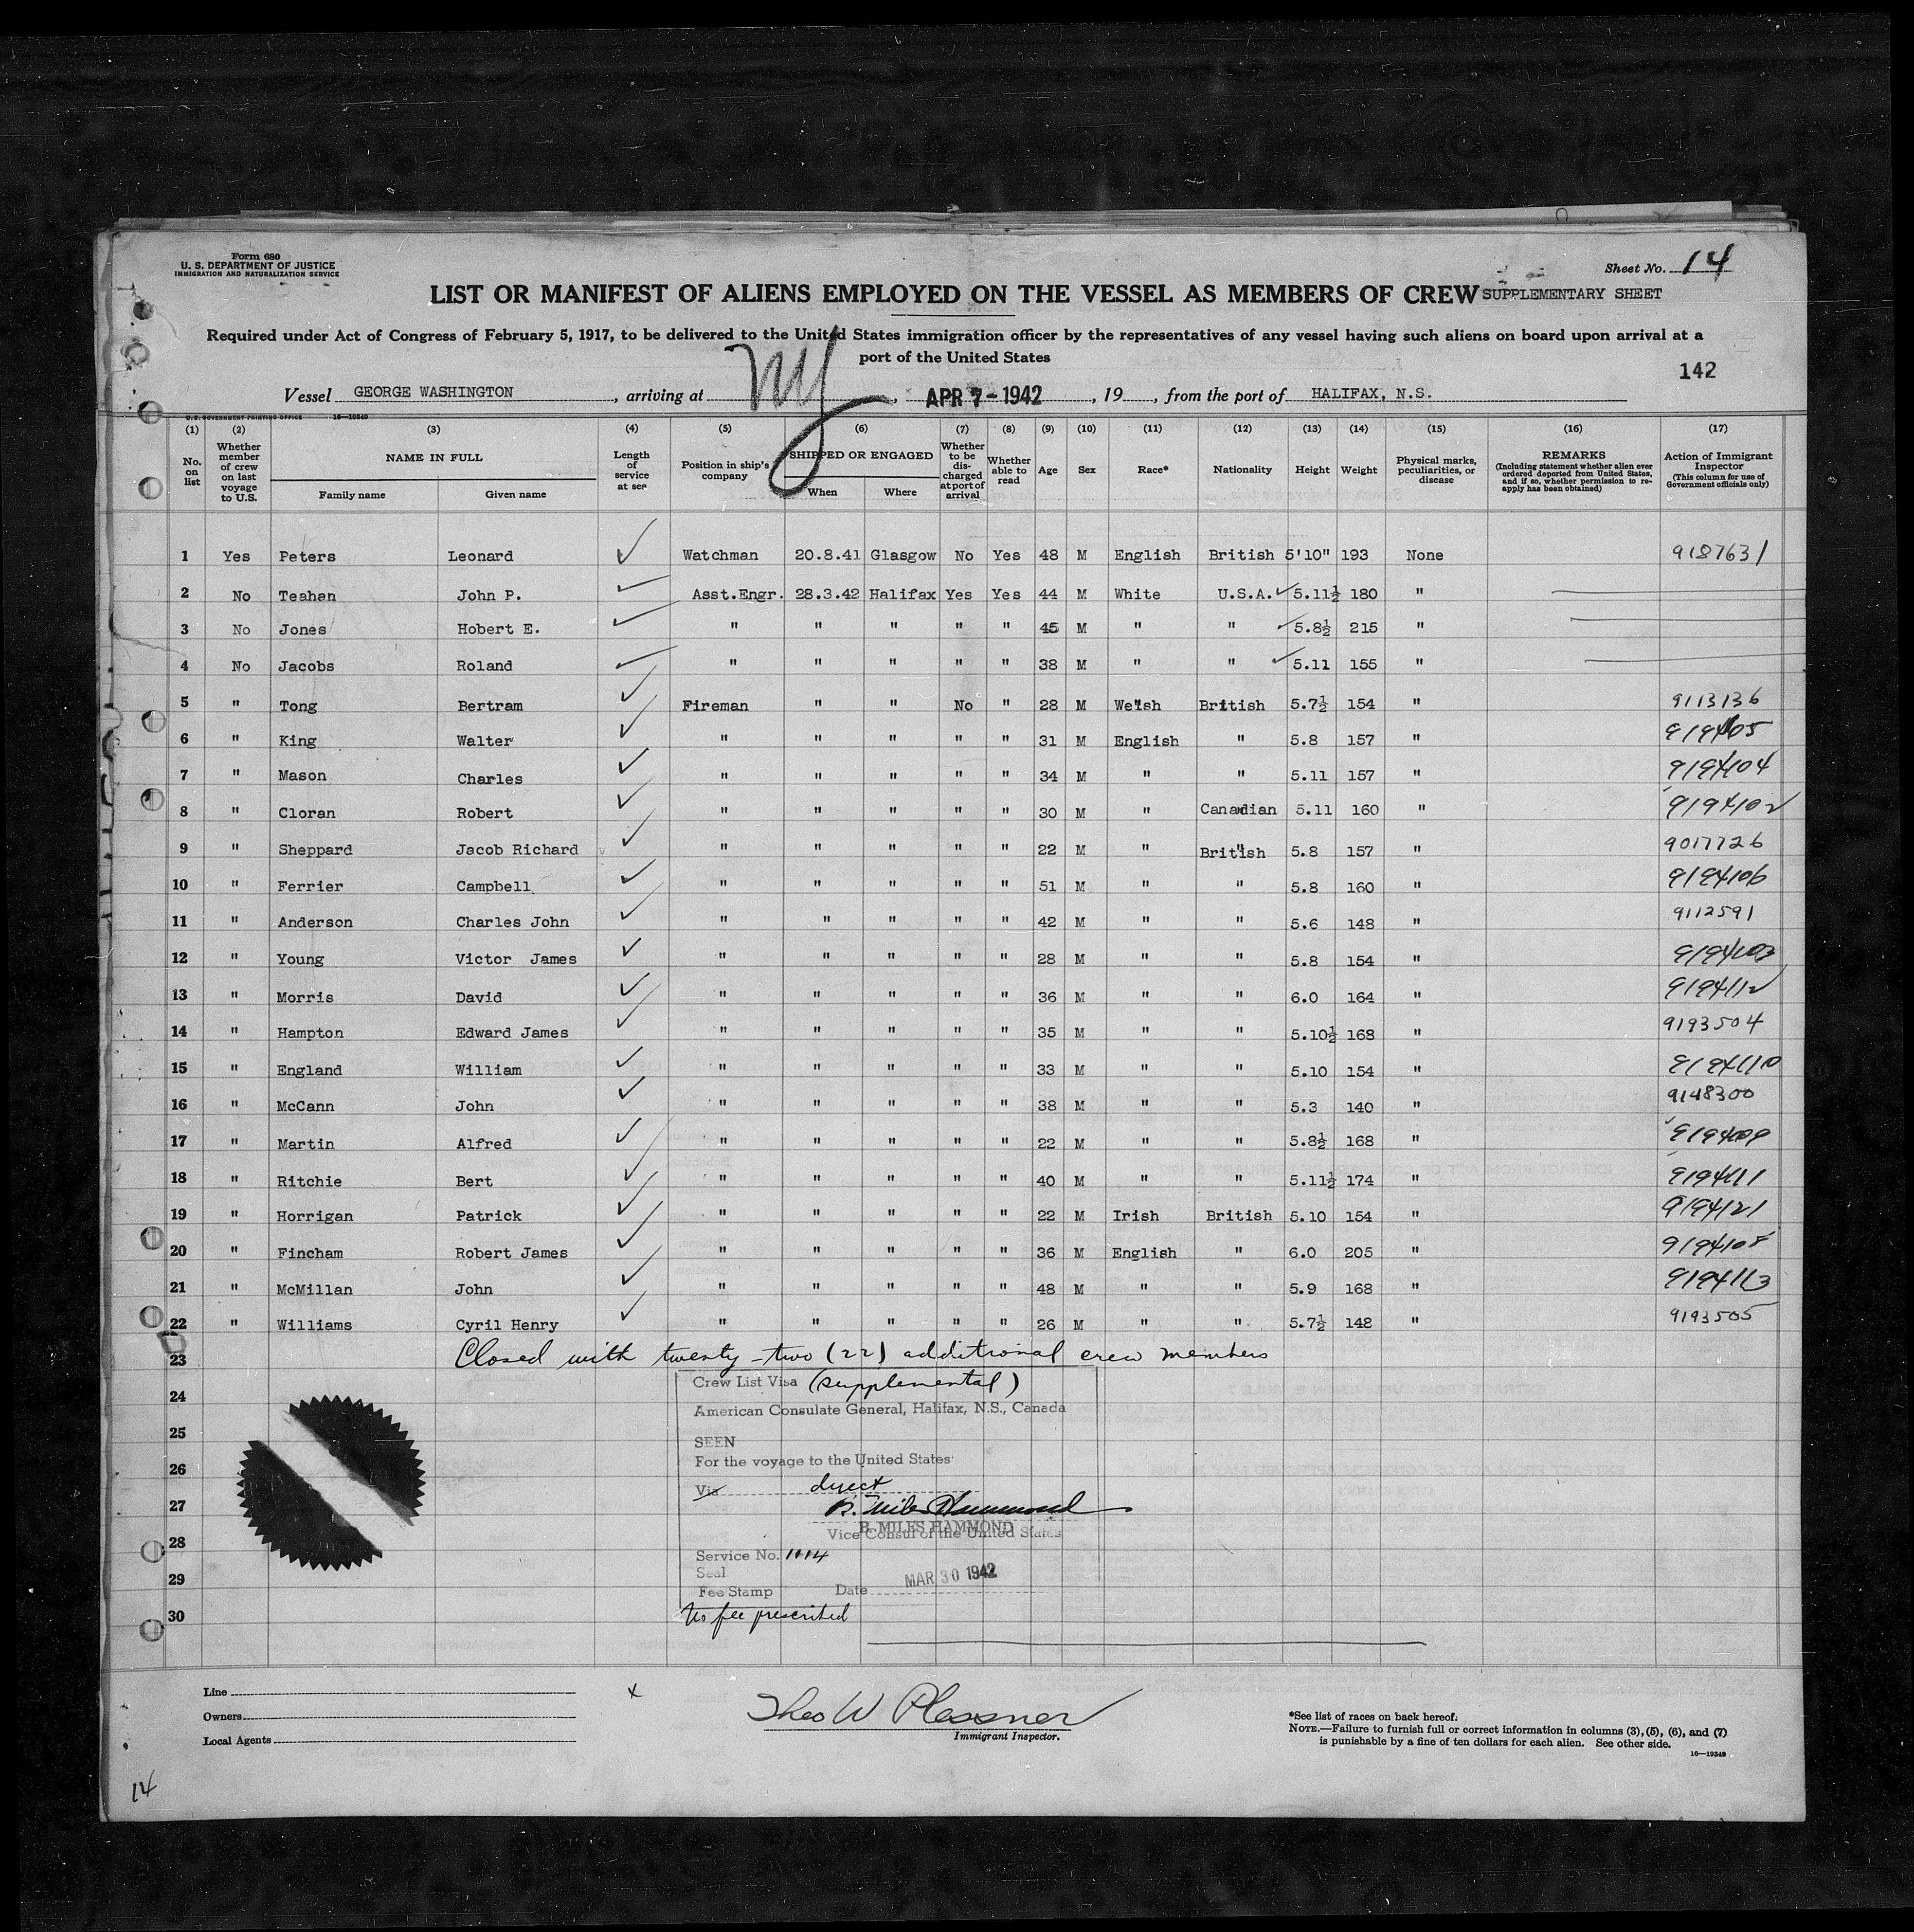 Form 680
U. S. DEPARTMENT OF JUSTICE
IMMIGRATION AND NATURALIZATION SERVICE
Sheet No. 14
LIST OR MANIFEST OF ALIENS EMPLOYED ON THE VESSEL AS MEMBERS OF CREW SUPPLEMENTARY SHEET
Required under Act of Congress of February 5, 1917, to be delivered to the United States immigration officer by the representatives of any vessel having such aliens on board upon arrival at a
port of the United States
142
Vessel GEORGE WASHINGTON, arriving at NY, APR 7-1942, 19, from the port of HALIFAX, N.S.
U.S. GOVERNMENT PRINTING OFFICE 16—19349
(1) (2) (3) (4) (5) (6) (7) (8) (9) (10) (11) (12) (13) (14) (15) (16) (17)
No. on list
Whether member of crew on last voyage to U.S.
NAME IN FULL
Family name Given name
Length of service at sea
Position in ship's company
SHIPPED OR ENGAGED
When Where
Whether to be discharged at port of arrival
Whether able to read
Age
Sex
Race*
Nationality
Height
Weight
Physical marks, peculiarities, or disease
REMARKS
(Including statement whether alien ever ordered deported from United States, and if so, whether permission to reapply has been obtained)
Action of Immigrant Inspector
(This column for use of Government officials only)
1 Yes Peters Leonard Watchman 20.8.41 Glasgow No Yes 48 M English British 5'10" 193 None 9187631
2 No Teahan John P. Asst.Engr. 28.3.42 Halifax Yes Yes 44 M White U.S.A. 5.11½ 180 "
3 No Jones Hobert E. " " " " " 45 M " " 5.8½ 215 "
4 No Jacobs Roland " " " " " 38 M " " 5.11 155 "
5 " Tong Bertram Fireman " " No " 28 M Welsh British 5.7½ 154 " 9113136
6 " King Walter " " " " " 31 M English " 5.8 157 "
7 " Mason Charles " " " " " 34 M " " 5.11 157 " 9194104
8 " Cloran Robert " " " " " 30 M " Canadian 5.11 160 " 9194102
9 " Sheppard Jacob Richard " " " " " 22 M " British 5.8 157 " 9017726
10 " Ferrier Campbell " " " " " 51 M " " 5.8 160 " 9194106
11 " Anderson Charles John " " " " " 42 M " " 5.6 148 " 9112591
12 " Young Victor James " " " " " 28 M " " 5.8 154 " 9194103
13 " Morris David " " " " " 36 M " " 6.0 164 " 9194112
14 " Hampton Edward James " " " " " 35 M " " 5.10½ 168 " 9193504
15 " England William " " " " " 33 M " " 5.10 154 " 9194110
16 " McCann John " " " " " 38 M " " 5.3 140 " 9148300
17 " Martin Alfred " " " " " 22 M " " 5.8½ 168 "
18 " Ritchie Bert " " " " " 40 M " " 5.11½ 174 " 9194111
19 " Horrigan Patrick " " " " " 22 M Irish British 5.10 154 " 9194121
20 " Fincham Robert James " " " " " 36 M English " 6.0 205 " 9194108
21 " McMillan John " " " " " 48 M " " 5.9 168 " 9194113
22 " Williams Cyril Henry " " " " " 26 M " " 5.7½ 148 " 9193505
23 Closed with twenty-two (22) additional crew members
24 Crew List Visa (supplemental)
American Consulate General, Halifax, N.S., Canada
25 SEEN
26 For the voyage to the United States
Via direct
27 B. Miles Hammond
B. MILES HAMMOND
28 Vice Consul of the United States
Service No. 1114
29 Seal
Fee Stamp Date MAR 30 1942
30 No fee prescribed
Line
Owners
Local Agents
x
Theo W Plessner
Immigrant Inspector.
*See list of races on back hereof.
NOTE.—Failure to furnish full or correct information in columns (3), (5), (6), and (7)
is punishable by a fine of ten dollars for each alien. See other side.
16—19349
14